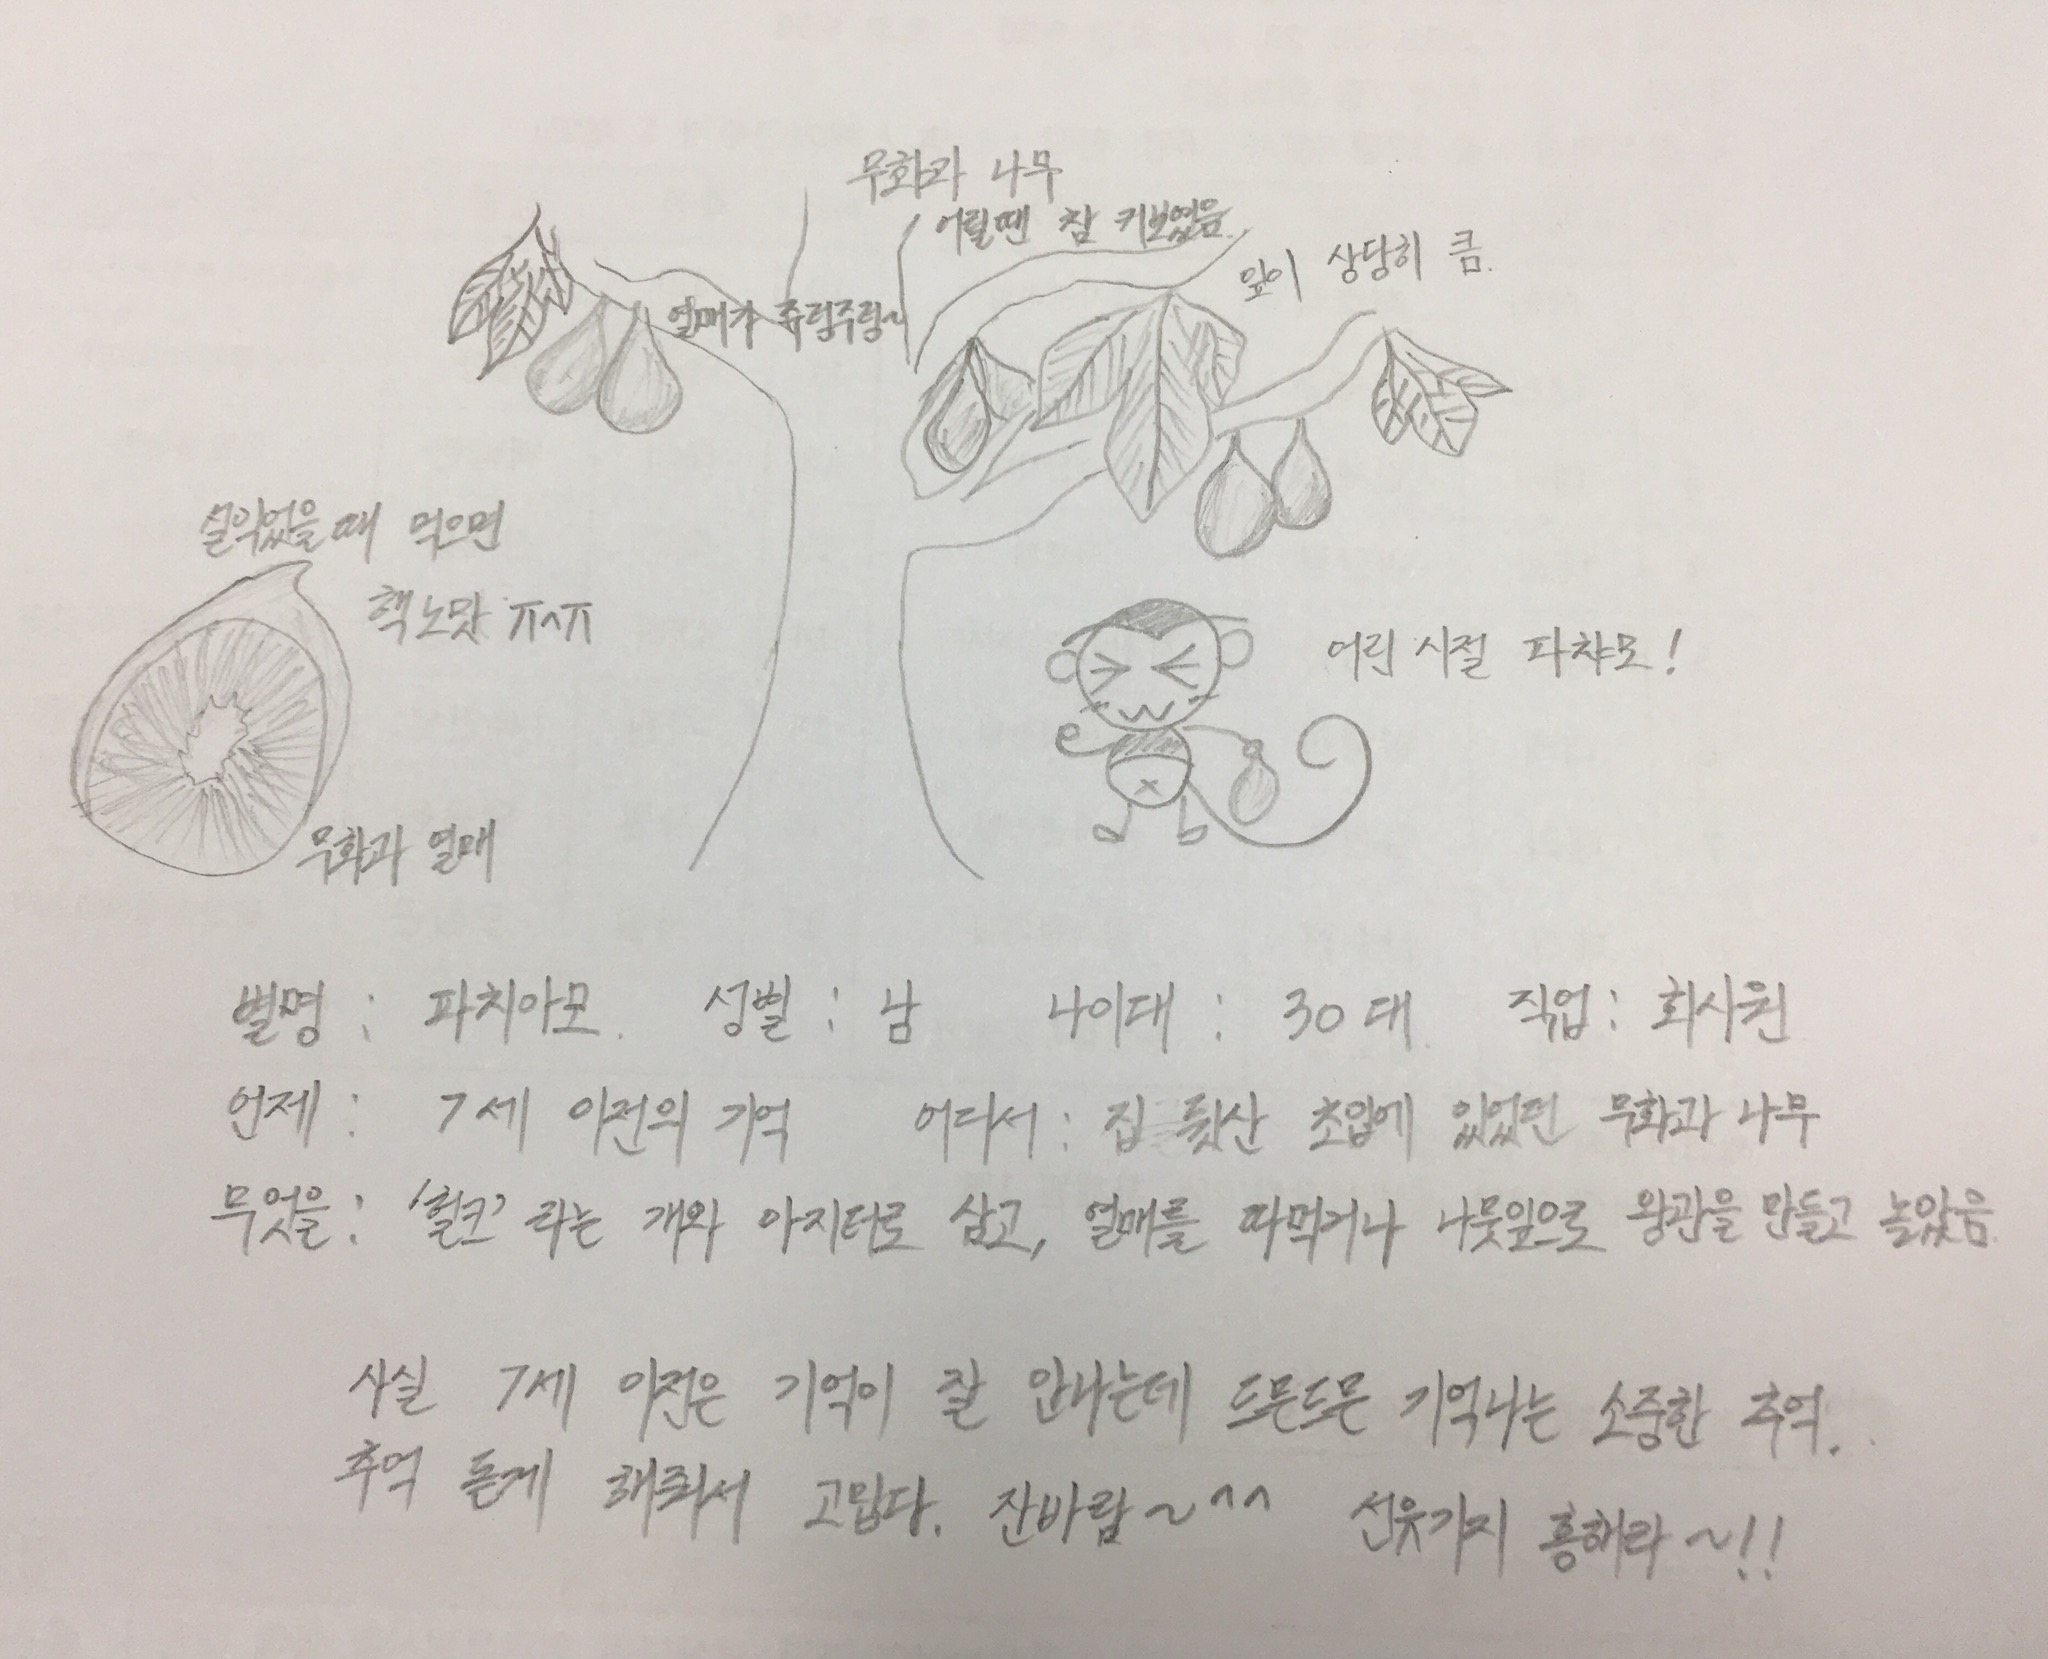 무화과 나무
어릴땐 참 커보였음.
잎이 상당히 큼.
열매가 주렁주렁~
설익었을때 먹으면
핵노맛 ㅠㅅㅠ
무화과 열매
어린시절 파챠모!
별명 : 파치아모. 성별 : 남 나이대 : 30대. 직업 : 회사원
언제 : 7세 이전의 기억 어디서 : 집 뒷산 초입에 있었던 무화과 나무
무엇을 : '헐크' 라는 개와 아지터로 삼고, 열매를 따먹거나 나뭇잎으로 왕관을 만들고 놀았음.
사실 7세 이전은 기억이 잘 안나는데 드문드문 기억나는 소중한 추억.
추억 돋게 해줘서 고맙다. 잔바람~^^ 선유가지 흥해라~!!